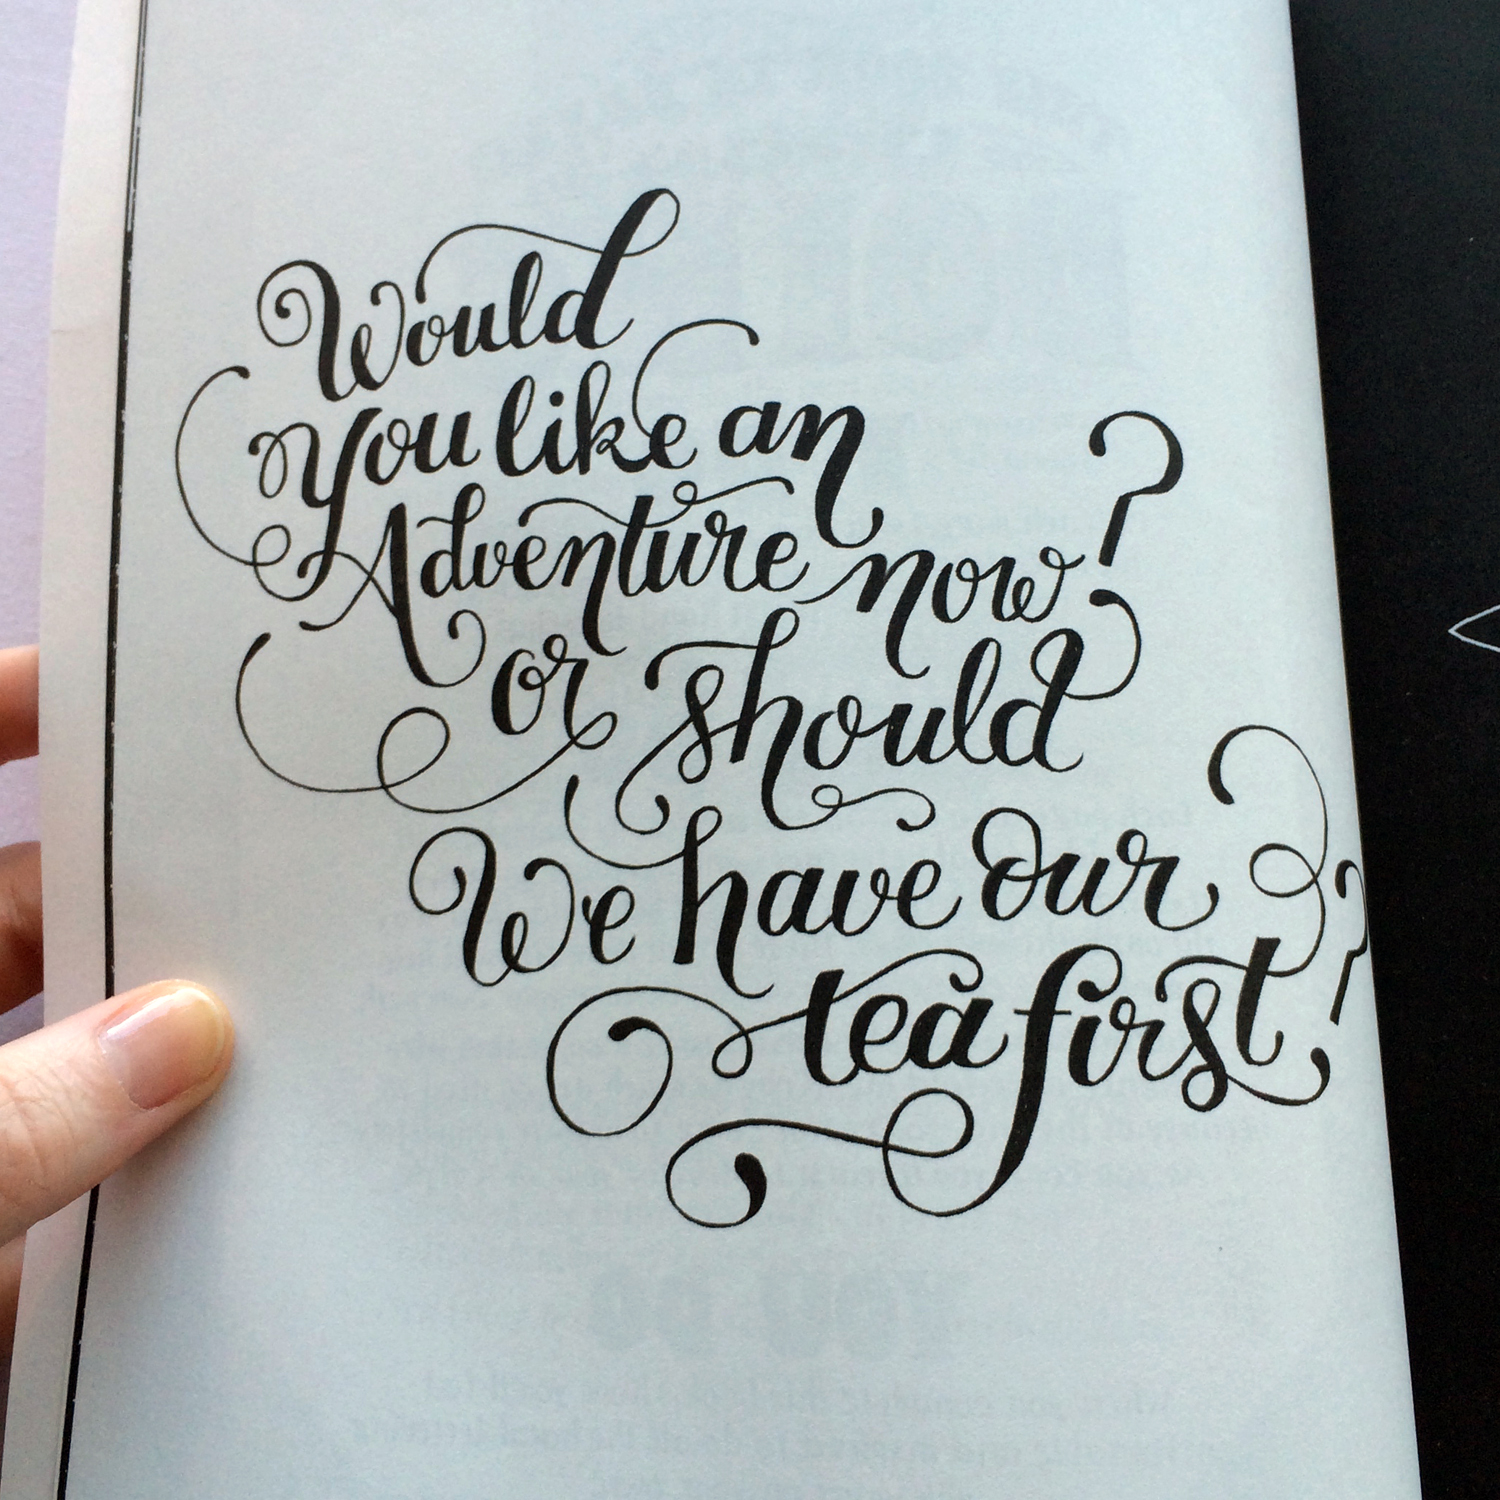 Would
You like an
Adventure now?
or should
We have our
tea first?